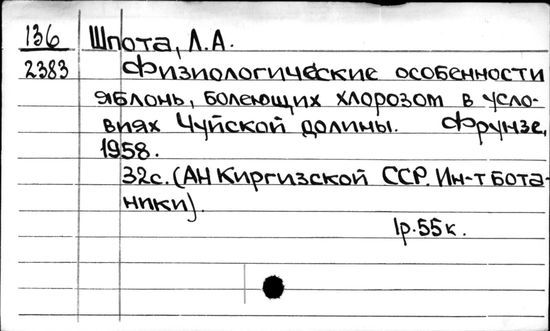 136 Шпота, Л.А.
2383 Физиологические особенности
яблонь, болеющих хлорозом в усло-
виях Чуйской долины. Фрунзе,
1958.
32с. (АН Киргизской ССР. Ин-т бота-
ники).
1р.55к.